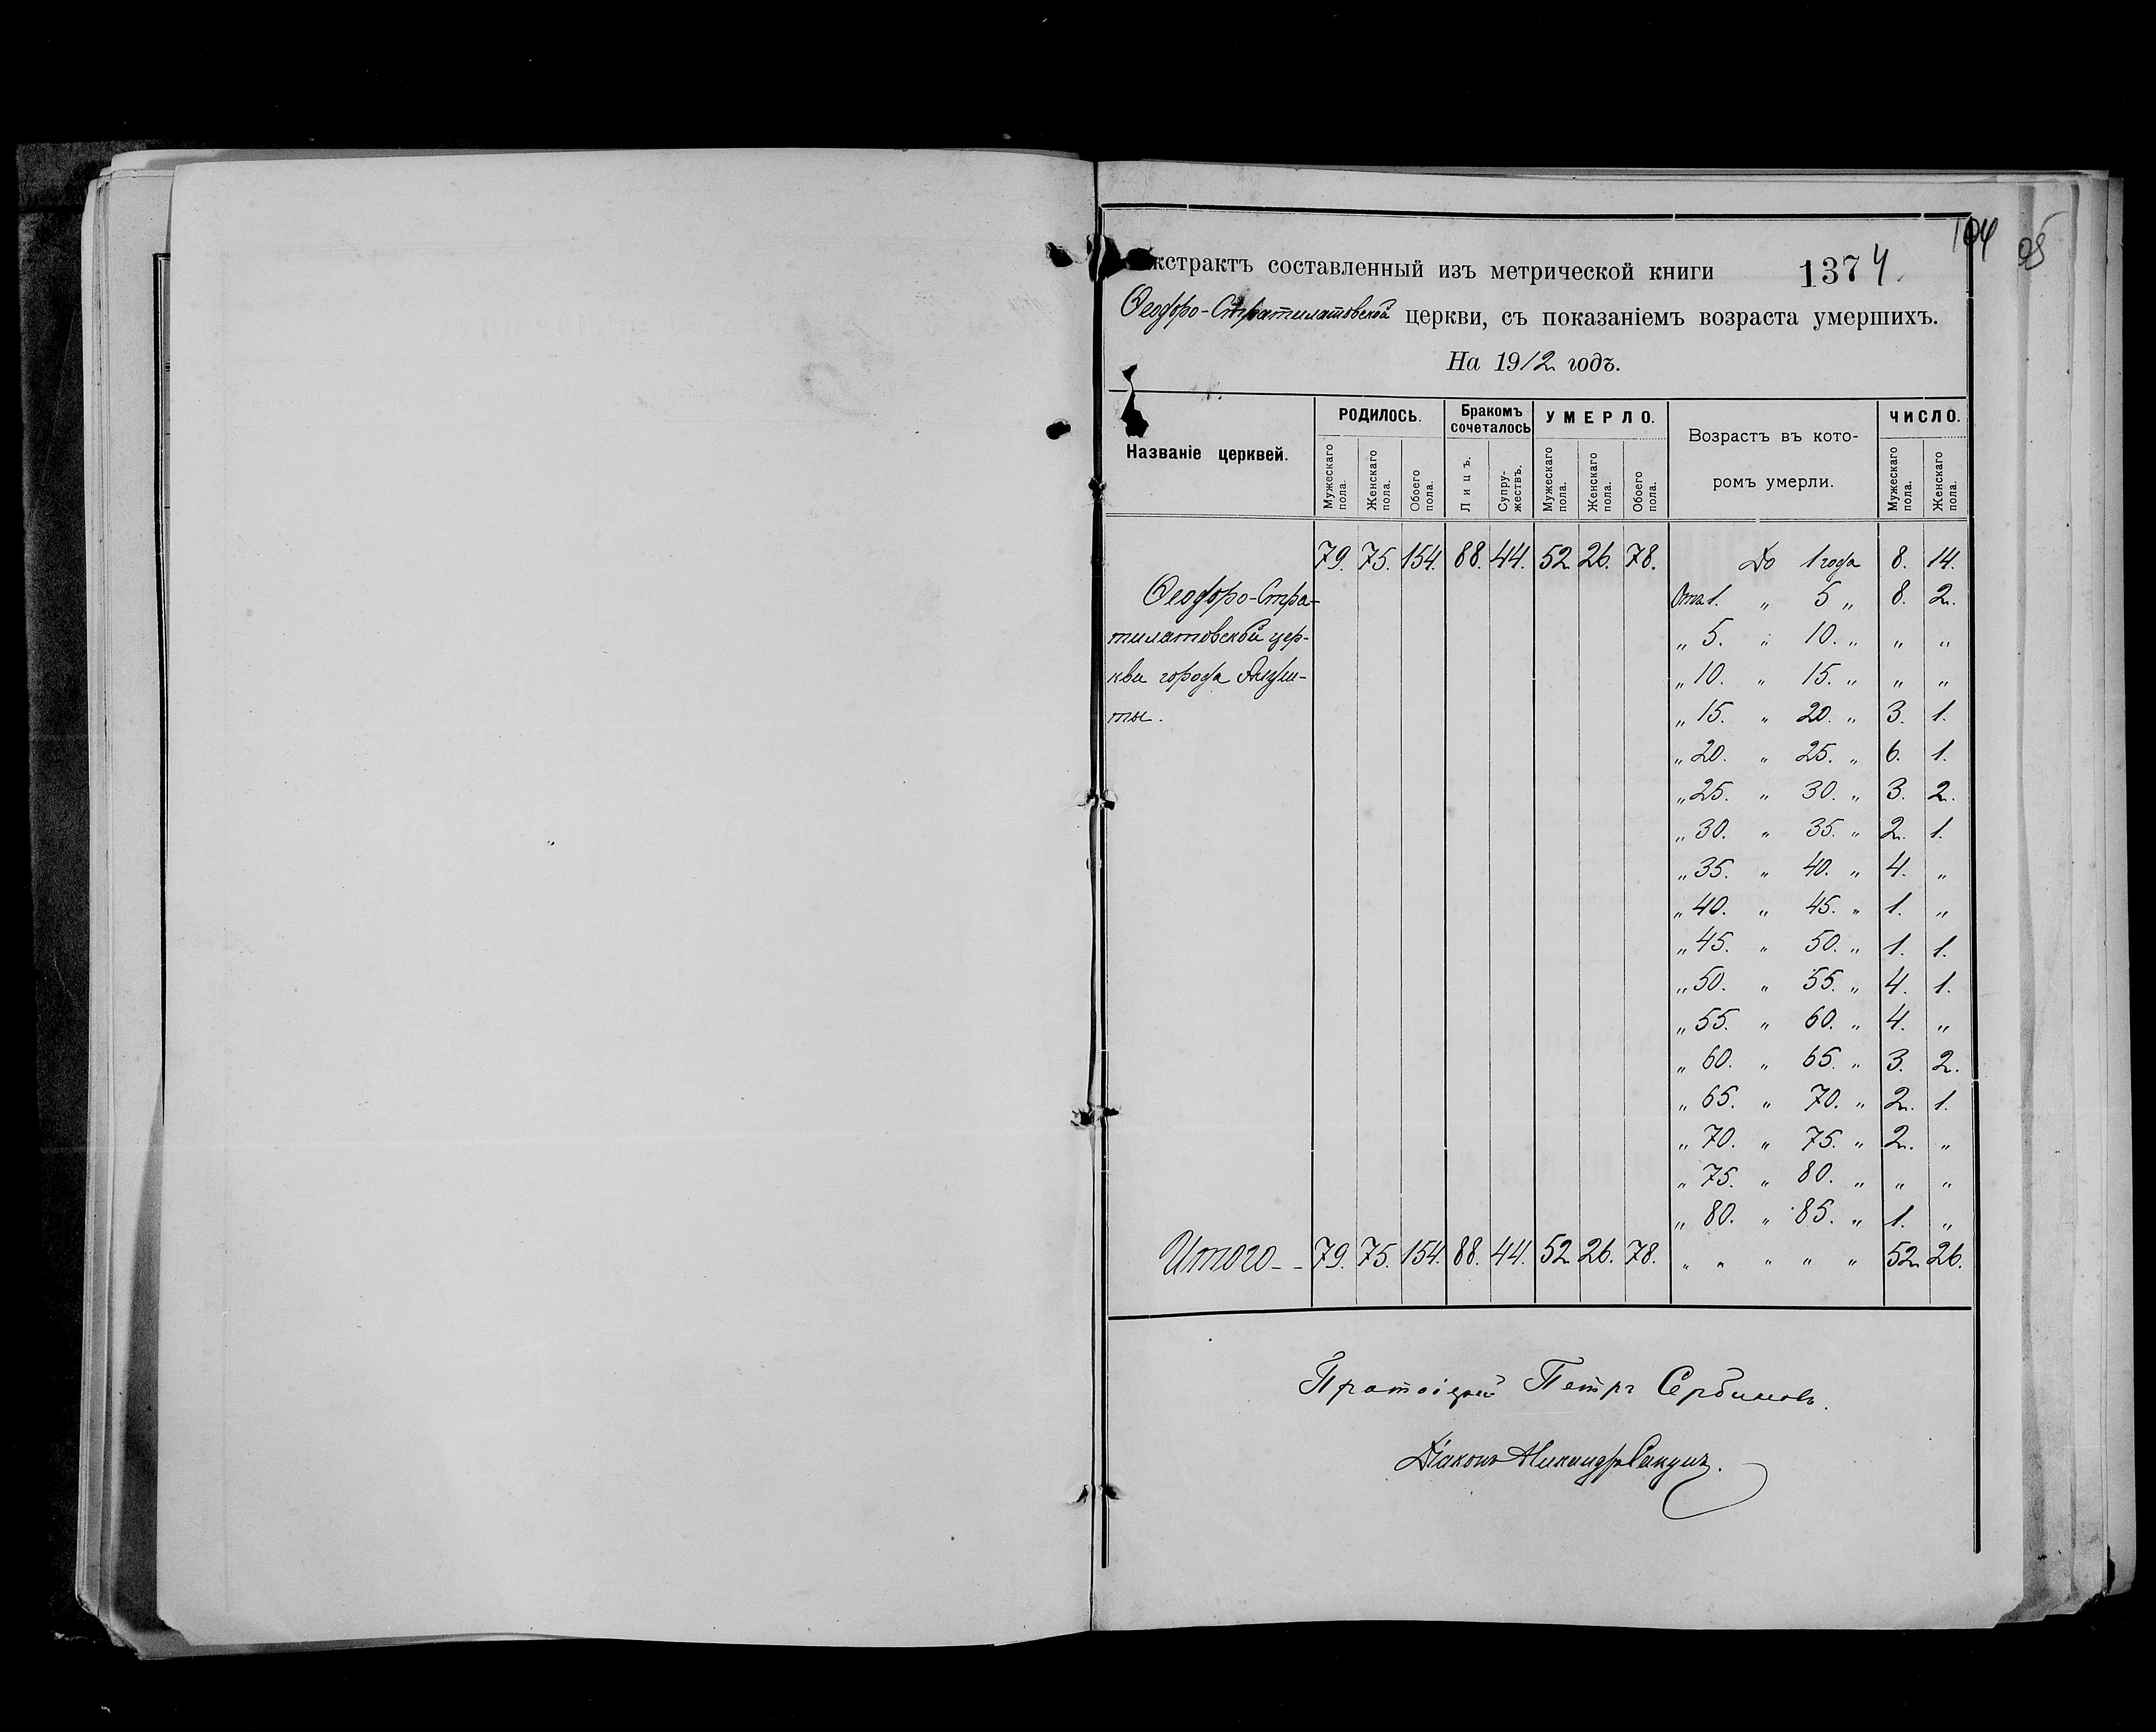 104
95
кстрактъ составленный изъ метрической книги 1374
Ѳеодоро-Стратилатовской церкви, съ показаніемъ возраста умершихъ.
На 1912 годъ.
Названіе церквей.
РОДИЛОСЬ.
Бракомъ сочеталось
УМЕРЛО.
Возрастъ въ кото-
ромъ умерли.
ЧИСЛО.
Мужескаго пола. Женскаго пола. Обоего пола. Лицъ. Супру-жествъ. Мужескаго пола. Женскаго пола. Обоего пола. Мужескаго пола. Женскаго пола.
79. 75. 154. 88. 44. 52. 26. 78. До 1 года 8. 14.
Ѳеодоро-Стра- Отъ 1. " 5 " 8. 2.
тилатовской цер- " 5. " 10. " " "
кви города Алуш- " 10. " 15. " " "
ты. " 15. " 20. " 3. 1.
" 20. " 25. " 6. 1.
" 25. " 30. " 3. 2.
" 30. " 35. " 2. 1.
" 35. " 40. " 4. "
" 40. " 45. " 1. "
" 45. " 50. " 1. 1.
" 50. " 55. " 4. 1.
" 55. " 60. " 4. "
" 60. " 65. " 3. 2.
" 65. " 70. " 2. 1.
" 70. " 75. " 2. "
" 75. " 80. " " "
" 80. " 85. " 1. "
Итого - - 79. 75. 154. 88. 44. 52. 26. 78. " " " " " 52. 26.
Протоіерей Петръ Сербиновъ.
Діаконъ Никандръ